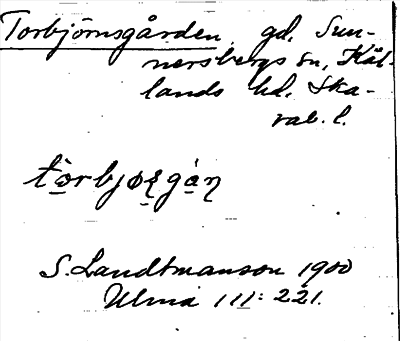 Torbjörnsgården, gd, Sun-
nersbergs sn, Kål-
lands hd. Ska-
rab. l.
tòrbjøʂgán
S. Landtmanson 1900
Ulma 111:221.